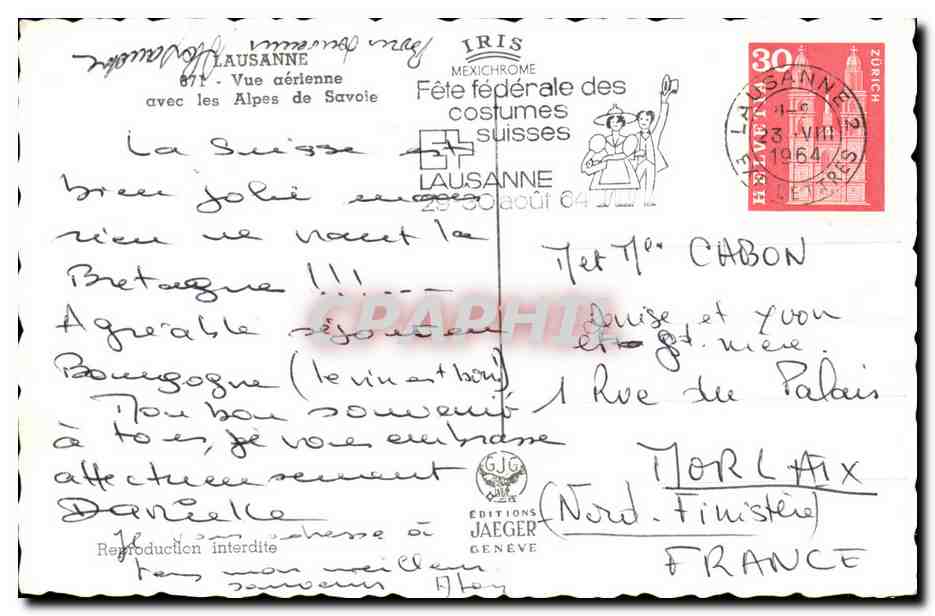 Bons souvenirs
LAUSANNE
871 - Vue aérienne
avec les Alpes de Savoie
IRIS
MEXICHROME
Fête fédérale des
costumes
suisses
LAUSANNE
29-30 août 64
LAUSANNE 2
23 VIII
1964
LETTRES
30
HELVETIA
ZÜRICH
La Suisse est
bien jolie mais
rien ne vaut la
Bretagne !!! ---
Agréable séjour en
Bourgogne (le vin est bon!)
Mon bon souvenir
à tous, je vous embrasse
affectueusement
Danielle
Je vous adresse à
tous mon meilleur
souvenir
M et Me CABON
Denise et Yvon
et gd. mère.
1 Rue du Palais
MORLAIX
(Nord-Finistère)
FRANCE
GJG
ÉDITIONS
JAEGER
GENÈVE
Reproduction interdite
CPAPHIL